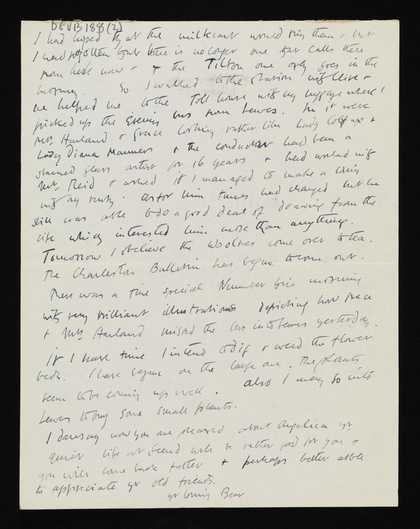 I had hoped that the milkcart would but
I was forgotten but there is no longer one that calls there
from here now & the Tilton one only goes in the
morning. So I walked to the station with Clive &
he helped me to the Toll house with my luggage where I
picked up the evening bus from Lewes. In it were
Mrs. Harland & Grace looking rather like Lady Colefax &
Lady Diana Manners & the conductor had been a
stained glass artist for 16 years & had worked with
Mr. Reid & asked if I managed to make a living
with my work. As for him times had changed but he
still was able to do a good deal of drawing from the
life which interested him more than anything.
Tomorrow I believe the Woolves come over to tea.
The Charleston Bulletin has begun to come out.
There was a fine special Number this morning
with very brilliant illustrations depicting how Grace
& Mrs Harland missed the bus into Lewes yesterday.
If I have time I intend to dig & weed the flower
beds. I have begun on the large one. The plants
seem to be coming up well. Also I may go into
Lewes to buy some small plants.
I daresay now you are pleased about Angelica yr
quiet life at Seend will be rather good for you &
you will come back fatter & perhaps better able
to appreciate yr old friends.
yr loving Bear